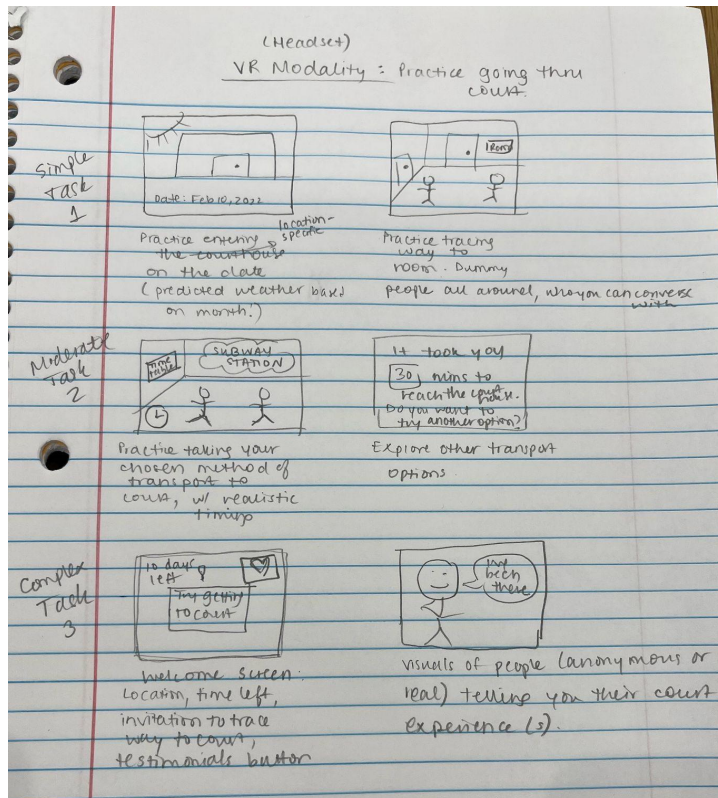 (Headset)
VR Modality: Practice going thru
court.
Simple
Task
1
Date: Feb 10, 2022
Practice entering location-
specific
the courthouse
on the date
(predicted weather based
on month!)
Room
Practice tracing
way to
room. Dummy
people all around, who you can converse
with
Moderate
Task
2
Time
table
SUBWAY
STATION
Practice taking your
chosen method of
transport to
court, w/ realistic
timings
It took you
30 mins to
reach the court
house.
Do you want to
try another option?
Explore other transport
options
Complex
Task
3
10 days
left
Try getting
to court
Welcome screen:
Location, time left,
invitation to trace
way to court,
testimonials button
I've
been
there
Visuals of people (anonymous or
real) telling you their court
experience(s).